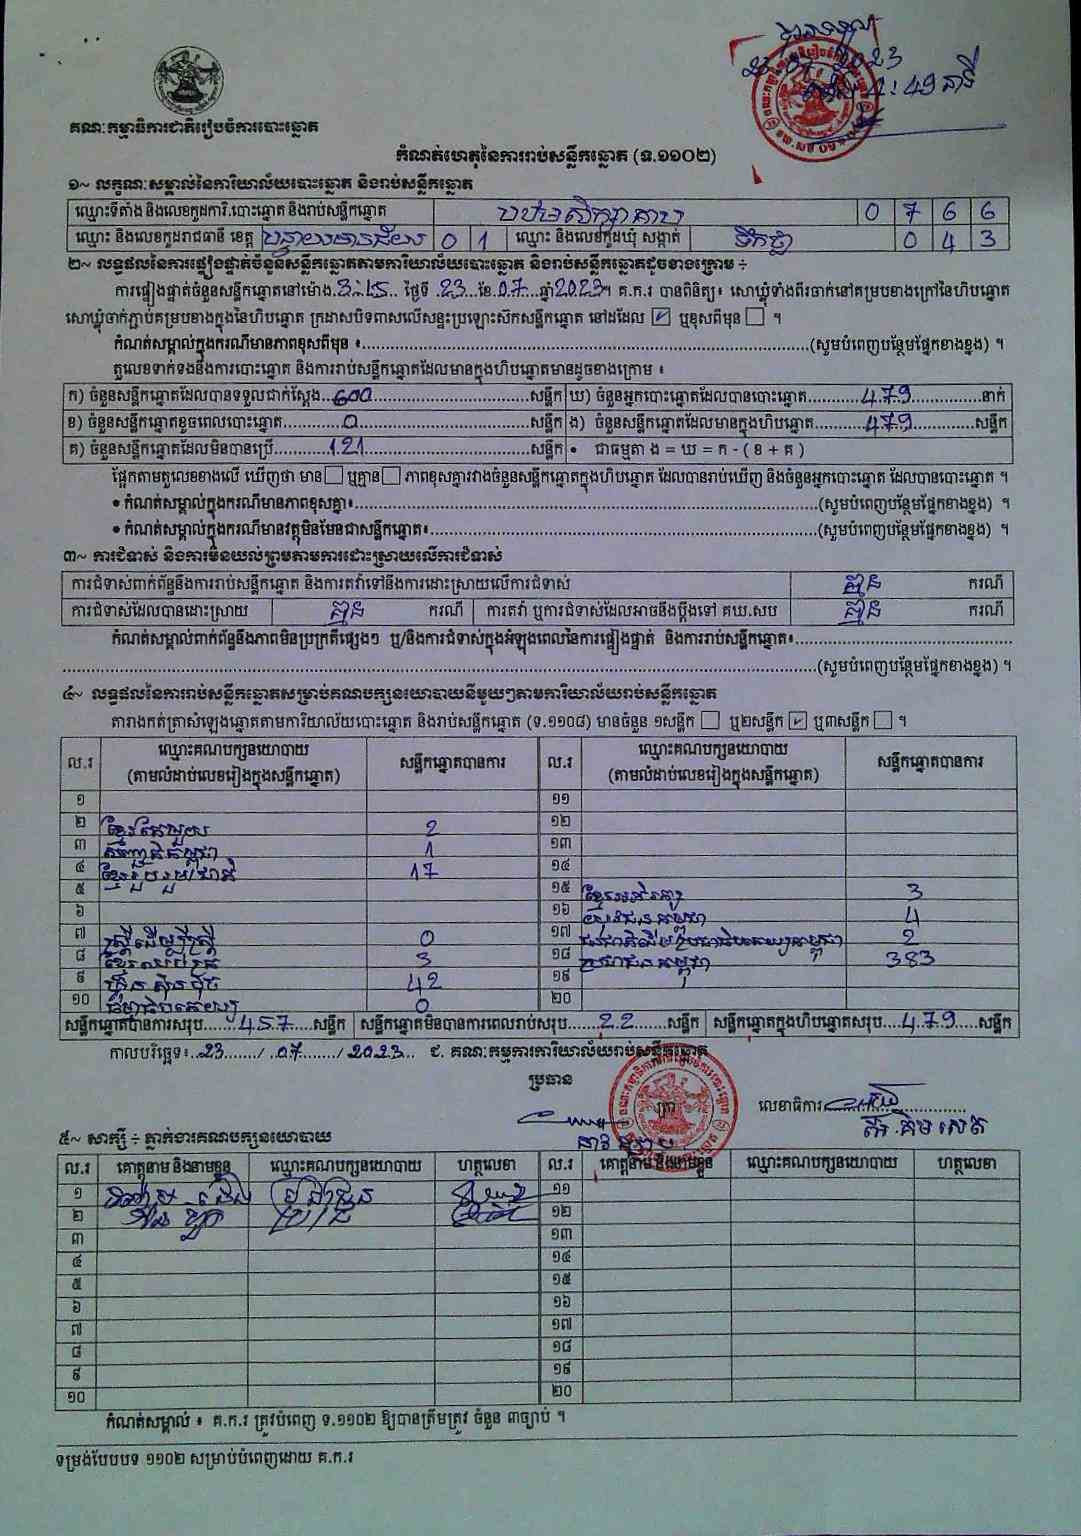 23 07 2023
4:49 នាទី
គណៈកម្មាធិការជាតិរៀបចំការបោះឆ្នោត
កំណត់ហេតុនៃការរាប់សន្លឹកឆ្នោត (ទ.១១០២)
១~ លក្ខណៈសម្គាល់នៃការិយាល័យបោះឆ្នោត និងរាប់សន្លឹកឆ្នោត
ឈ្មោះទីតាំង និងលេខកូដការិ.បោះឆ្នោត និងរាប់សន្លឹកឆ្នោត បឋមសិក្សា 0 7 6 6
ឈ្មោះ និងលេខកូដរាជធានី ខេត្ត បន្ទាយមានជ័យ 0 1 ឈ្មោះ និងលេខកូដឃុំ សង្កាត់ ទឹកថ្លា 0 4 3
២~ លទ្ធផលនៃការផ្ទៀងផ្ទាត់ចំនួនសន្លឹកឆ្នោតតាមការិយាល័យបោះឆ្នោត និងរាប់សន្លឹកឆ្នោតដូចខាងក្រោម ÷
ការផ្ទៀងផ្ទាត់ចំនួនសន្លឹកឆ្នោតនៅម៉ោង.3:15... ថ្ងៃទី ..23...ខែ.07....ឆ្នាំ2023។ គ.ក.រ បានពិនិត្យ៖ សោឃ្លុំទាំងពីរចាក់នៅគម្របខាងក្រៅនៃហិបឆ្នោត
សោឃ្លុំចាក់ភ្ជាប់គម្របខាងក្នុងនៃហិបឆ្នោត ក្រដាសបិទពាសលើសន្ទះប្រឡោះស៊កសន្លឹកឆ្នោត នៅដដែល ☑ ឬខុសពីមុន ☐ ។
កំណត់សម្គាល់ក្នុងករណីមានភាពខុសពីមុន ៖...(សូមបំពេញបន្ថែមផ្នែកខាងខ្នង) ។
តួលេខទាក់ទងនឹងការបោះឆ្នោត និងការរាប់សន្លឹកឆ្នោតដែលមានក្នុងហិបឆ្នោតមានដូចខាងក្រោម ៖
ក) ចំនួនសន្លឹកឆ្នោតដែលបានទទួលជាក់ស្តែង...600...សន្លឹក ឃ) ចំនួនអ្នកបោះឆ្នោតដែលបានបោះឆ្នោត...479...នាក់
ខ) ចំនួនសន្លឹកឆ្នោតខូចពេលបោះឆ្នោត...0...សន្លឹក ង) ចំនួនសន្លឹកឆ្នោតដែលមានក្នុងហិបឆ្នោត...479...សន្លឹក
គ) ចំនួនសន្លឹកឆ្នោតដែលមិនបានប្រើ...121...សន្លឹក • ជាធម្មតា ង = ឃ = ក - ( ខ + គ )
ផ្អែកតាមតួលេខខាងលើ ឃើញថា មាន ☐ ឬគ្មាន ☐ ភាពខុសគ្នារវាងចំនួនសន្លឹកឆ្នោតក្នុងហិបឆ្នោត ដែលបានរាប់ឃើញ និងចំនួនអ្នកបោះឆ្នោត ដែលបានបោះឆ្នោត ។
• កំណត់សម្គាល់ក្នុងករណីមានភាពខុសគ្នា៖...(សូមបំពេញបន្ថែមផ្នែកខាងខ្នង) ។
• កំណត់សម្គាល់ក្នុងករណីមានវត្ថុមិនមែនជាសន្លឹកឆ្នោត៖...(សូមបំពេញបន្ថែមផ្នែកខាងខ្នង) ។
៣~ ការជំទាស់ និងការមិនយល់ព្រមតាមការដោះស្រាយលើការជំទាស់
ការជំទាស់ពាក់ព័ន្ធនឹងការរាប់សន្លឹកឆ្នោត និងការតវ៉ាទៅនឹងការដោះស្រាយលើការជំទាស់ គ្មាន ករណី
ការជំទាស់ដែលបានដោះស្រាយ គ្មាន ករណី ការតវ៉ា ឬការជំទាស់ដែលអាចនឹងប្តឹងទៅ គឃ.សប គ្មាន ករណី
កំណត់សម្គាល់ពាក់ព័ន្ធនឹងភាពមិនប្រក្រតីផ្សេងៗ ឬ/និងការជំទាស់ក្នុងអំឡុងពេលនៃការផ្ទៀងផ្ទាត់ និងការរាប់សន្លឹកឆ្នោត៖...
...(សូមបំពេញបន្ថែមផ្នែកខាងខ្នង) ។
៤~ លទ្ធផលនៃការរាប់សន្លឹកឆ្នោតសម្រាប់គណបក្សនយោបាយនីមួយៗតាមការិយាល័យរាប់សន្លឹកឆ្នោត
តារាងកត់ត្រាសំឡេងឆ្នោតតាមការិយាល័យបោះឆ្នោត និងរាប់សន្លឹកឆ្នោត (ទ.១១០៨) មានចំនួន ១សន្លឹក ☐ ឬ២សន្លឹក ☑ ឬ៣សន្លឹក ☐ ។
ល.រ ឈ្មោះគណបក្សនយោបាយ សន្លឹកឆ្នោតបានការ ល.រ ឈ្មោះគណបក្សនយោបាយ សន្លឹកឆ្នោតបានការ
(តាមលំដាប់លេខរៀងក្នុងសន្លឹកឆ្នោត) (តាមលំដាប់លេខរៀងក្នុងសន្លឹកឆ្នោត)
១ ១១
២ ខ្មែរតែមួយ 2 ១២
៣ 1 ១៣
៤ ខ្មែររួបរួមជាតិ 17 ១៤
៥ ១៥ 3
៦ ១៦ យុវជនកម្ពុជា 4
៧ ស្ត្រីដើម្បីស្ត្រី 0 ១៧ ជនជាតិដើមប្រជាធិបតេយ្យកម្ពុជា 2
៨ 3 ១៨ ប្រជាជនកម្ពុជា 383
៩ ហ៊្វុនស៊ិនប៉ិច 42 ១៩
១០ 0 ២០
សន្លឹកឆ្នោតបានការសរុប...457...សន្លឹក សន្លឹកឆ្នោតមិនបានការពេលរាប់សរុប...22...សន្លឹក សន្លឹកឆ្នោតក្នុងហិបឆ្នោតសរុប...479...សន្លឹក
កាលបរិច្ឆេទ៖..23....../..07....../..2023... ជ. គណៈកម្មការការិយាល័យរាប់សន្លឹកឆ្នោត
ប្រធាន
លេខាធិការ
គឹម សេត
៥~ សាក្សី ÷ ភ្នាក់ងារគណបក្សនយោបាយ
ល.រ គោត្តនាម និងនាមខ្លួន ឈ្មោះគណបក្សនយោបាយ ហត្ថលេខា ល.រ គោត្តនាម និងនាមខ្លួន ឈ្មោះគណបក្សនយោបាយ ហត្ថលេខា
១ ១១
២ ១២
៣ ១៣
៤ ១៤
៥ ១៥
៦ ១៦
៧ ១៧
៨ ១៨
៩ ១៩
១០ ២០
កំណត់សម្គាល់ ៖ គ.ក.រ ត្រូវបំពេញ ទ.១១០២ ឱ្យបានត្រឹមត្រូវ ចំនួន ៣ច្បាប់ ។
ទម្រង់បែបបទ ១១០២ សម្រាប់បំពេញដោយ គ.ក.រ